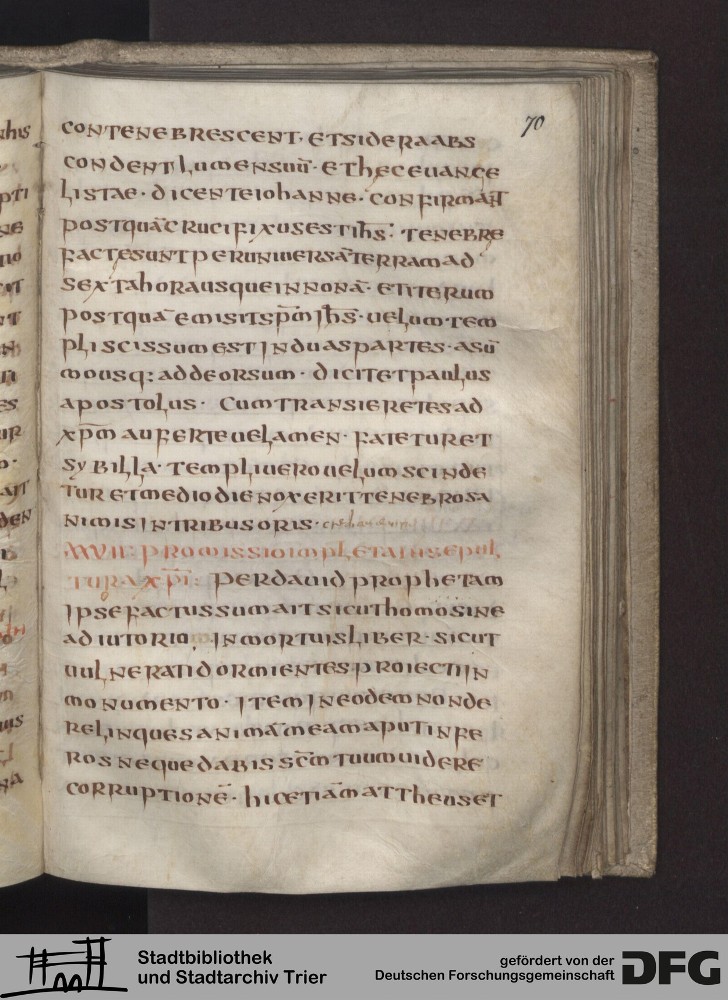 70
CONTENEBRESCENT· ETSIDERAABS
CONDENT LUMENSUŪ· ETHECEUANGE
LISTAE· DICENTEIOHANNE· CONFIRMAN̄T
POSTQUĀCRUCIFIXUSESTIH̄S: TENEBRE
FACTESUNTPERUNIUERSĀTERRAMAD
SEXTAHORAUSQUEINNONĀ· ETITERUM
POSTQUĀ EMISITSP̄M IH̄S· UELUMTEM
PLISCISSUMESTINDUASPARTES· ASŪ
MOUSQ: ADDEORSUM· DICITETPAULUS
APOSTOLUS· CUMTRANSIERETESAD
XP̄M AUFERTEUELAMEN· FATETURET
SYBILLA· TEMPLIUEROUELUMSCINDE
TUR ETMEDIODIENOXERITTENEBROSA
NIMISINTRIBUSORIS·
XXVII: PROMISSIOIMPLETAIUSEPUL
TURAXP̄I: PERDAUIDPROPHETAM
IPSEFACTUSSUMAITSICUTHOMOSINE
ADIUTORIO, INMORTUISLIBER· SICUT
UULNERATIDORMIENTESPROIECTIIN
MONUMENTO· ITEMINEODEMNONDE
RELINQUESANIMĀMEAMAPUTINFE
ROSNEQUEDABISSC̄MTUUMUIDERE
CORRUPTIONĒ· HICETIĀMATTHEUSET
Stadtbibliothek
und Stadtarchiv Trier
gefördert von der
Deutschen Forschungsgemeinschaft
DFG